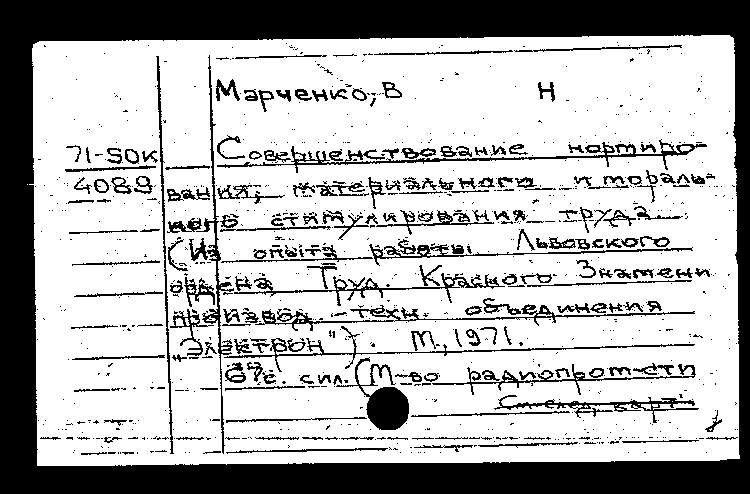 Марченко, В Н
71-50к Совершенствование нормиро-
4089 вания, материального и мораль-
ного стимулирования труда
(Из опыта работы Львовского
ордена Труд. Красного Знамени
производ.-техн. объединения
„Электрон"). М., 1971.
с. сил. (М-во радиопром-сти
См. след. карт.